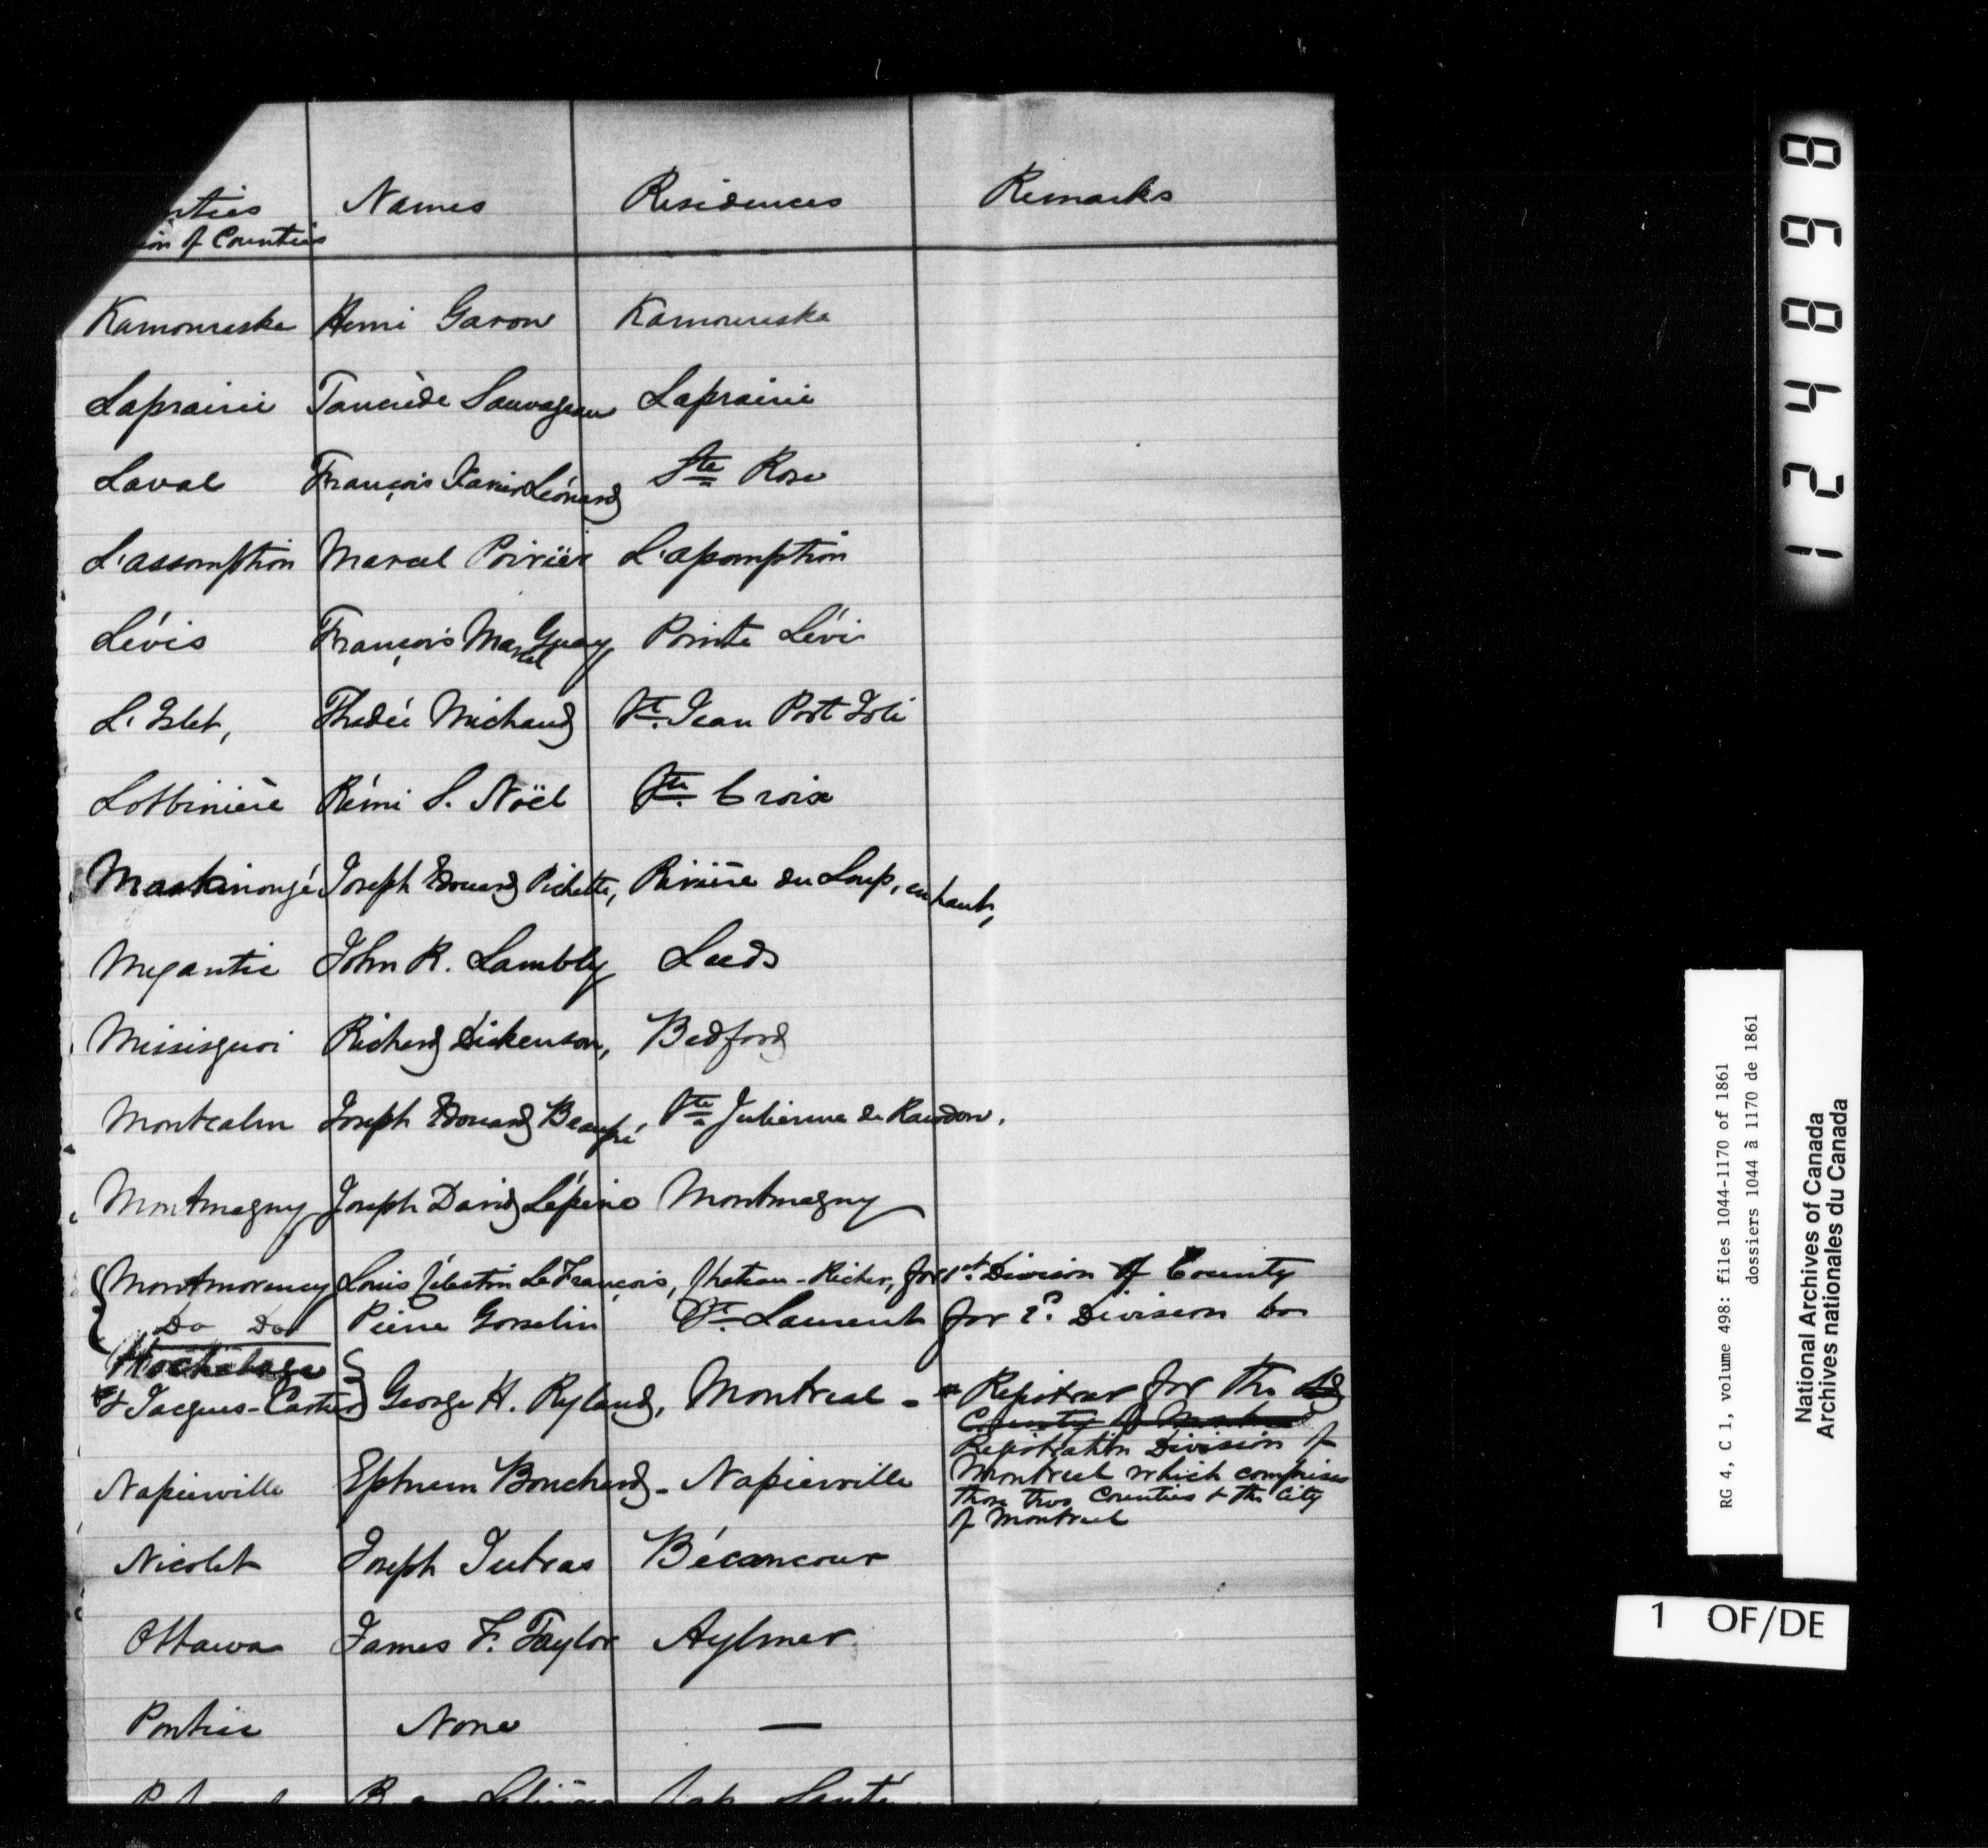 nties Names Residences Remarks
ion of Counties
Kamouraska Henri Garon Kamouraska
Laprairie Tancrède Sauvageau Laprairie
Laval François Xavier Léonard Ste Rose
L'assomption Marcel Poirier L'assomption
Lévis François Marcel Guay Pointe Lévi
L'Islet, Thadée Michaud St. Jean Port Joli
Lotbinière Rémi S. Noël Ste. Croix
Maskinongé Joseph Edouard Pichette, Rivière du Loup, en haut,
Megantic John R. Lambly Leeds
Missisquoi Richard Dickenson, Bedford
Montcalm Joseph Edouard Beaupré, Ste Julienne de Rawdon.
Montmagny Joseph David Lépine Montmagny
Montmorency Louis Célestin LeFrançois, Chateau-Richer, for 1st. Division of County
Do Do Pierre Gosselin St. Laurent for 2d. Division Do
Hochelaga
& Jacques-Cartier George H. Ryland, Montreal - Registrar for the
County of Montreal
Registration Division of
Napierville Ephrem Bouchard - Napierville Montreal which comprises
those two Counties & the City
of Montreal
Nicolet Joseph Jutras Bécancour
Ottawa James F. Taylor Aylmer
Pontiac None —
Cap Santé
124898
RG 4, C 1, volume 498: files 1044-1170 of 1861
dossiers 1044 à 1170 de 1861
National Archives of Canada
Archives nationales du Canada
1 OF/DE